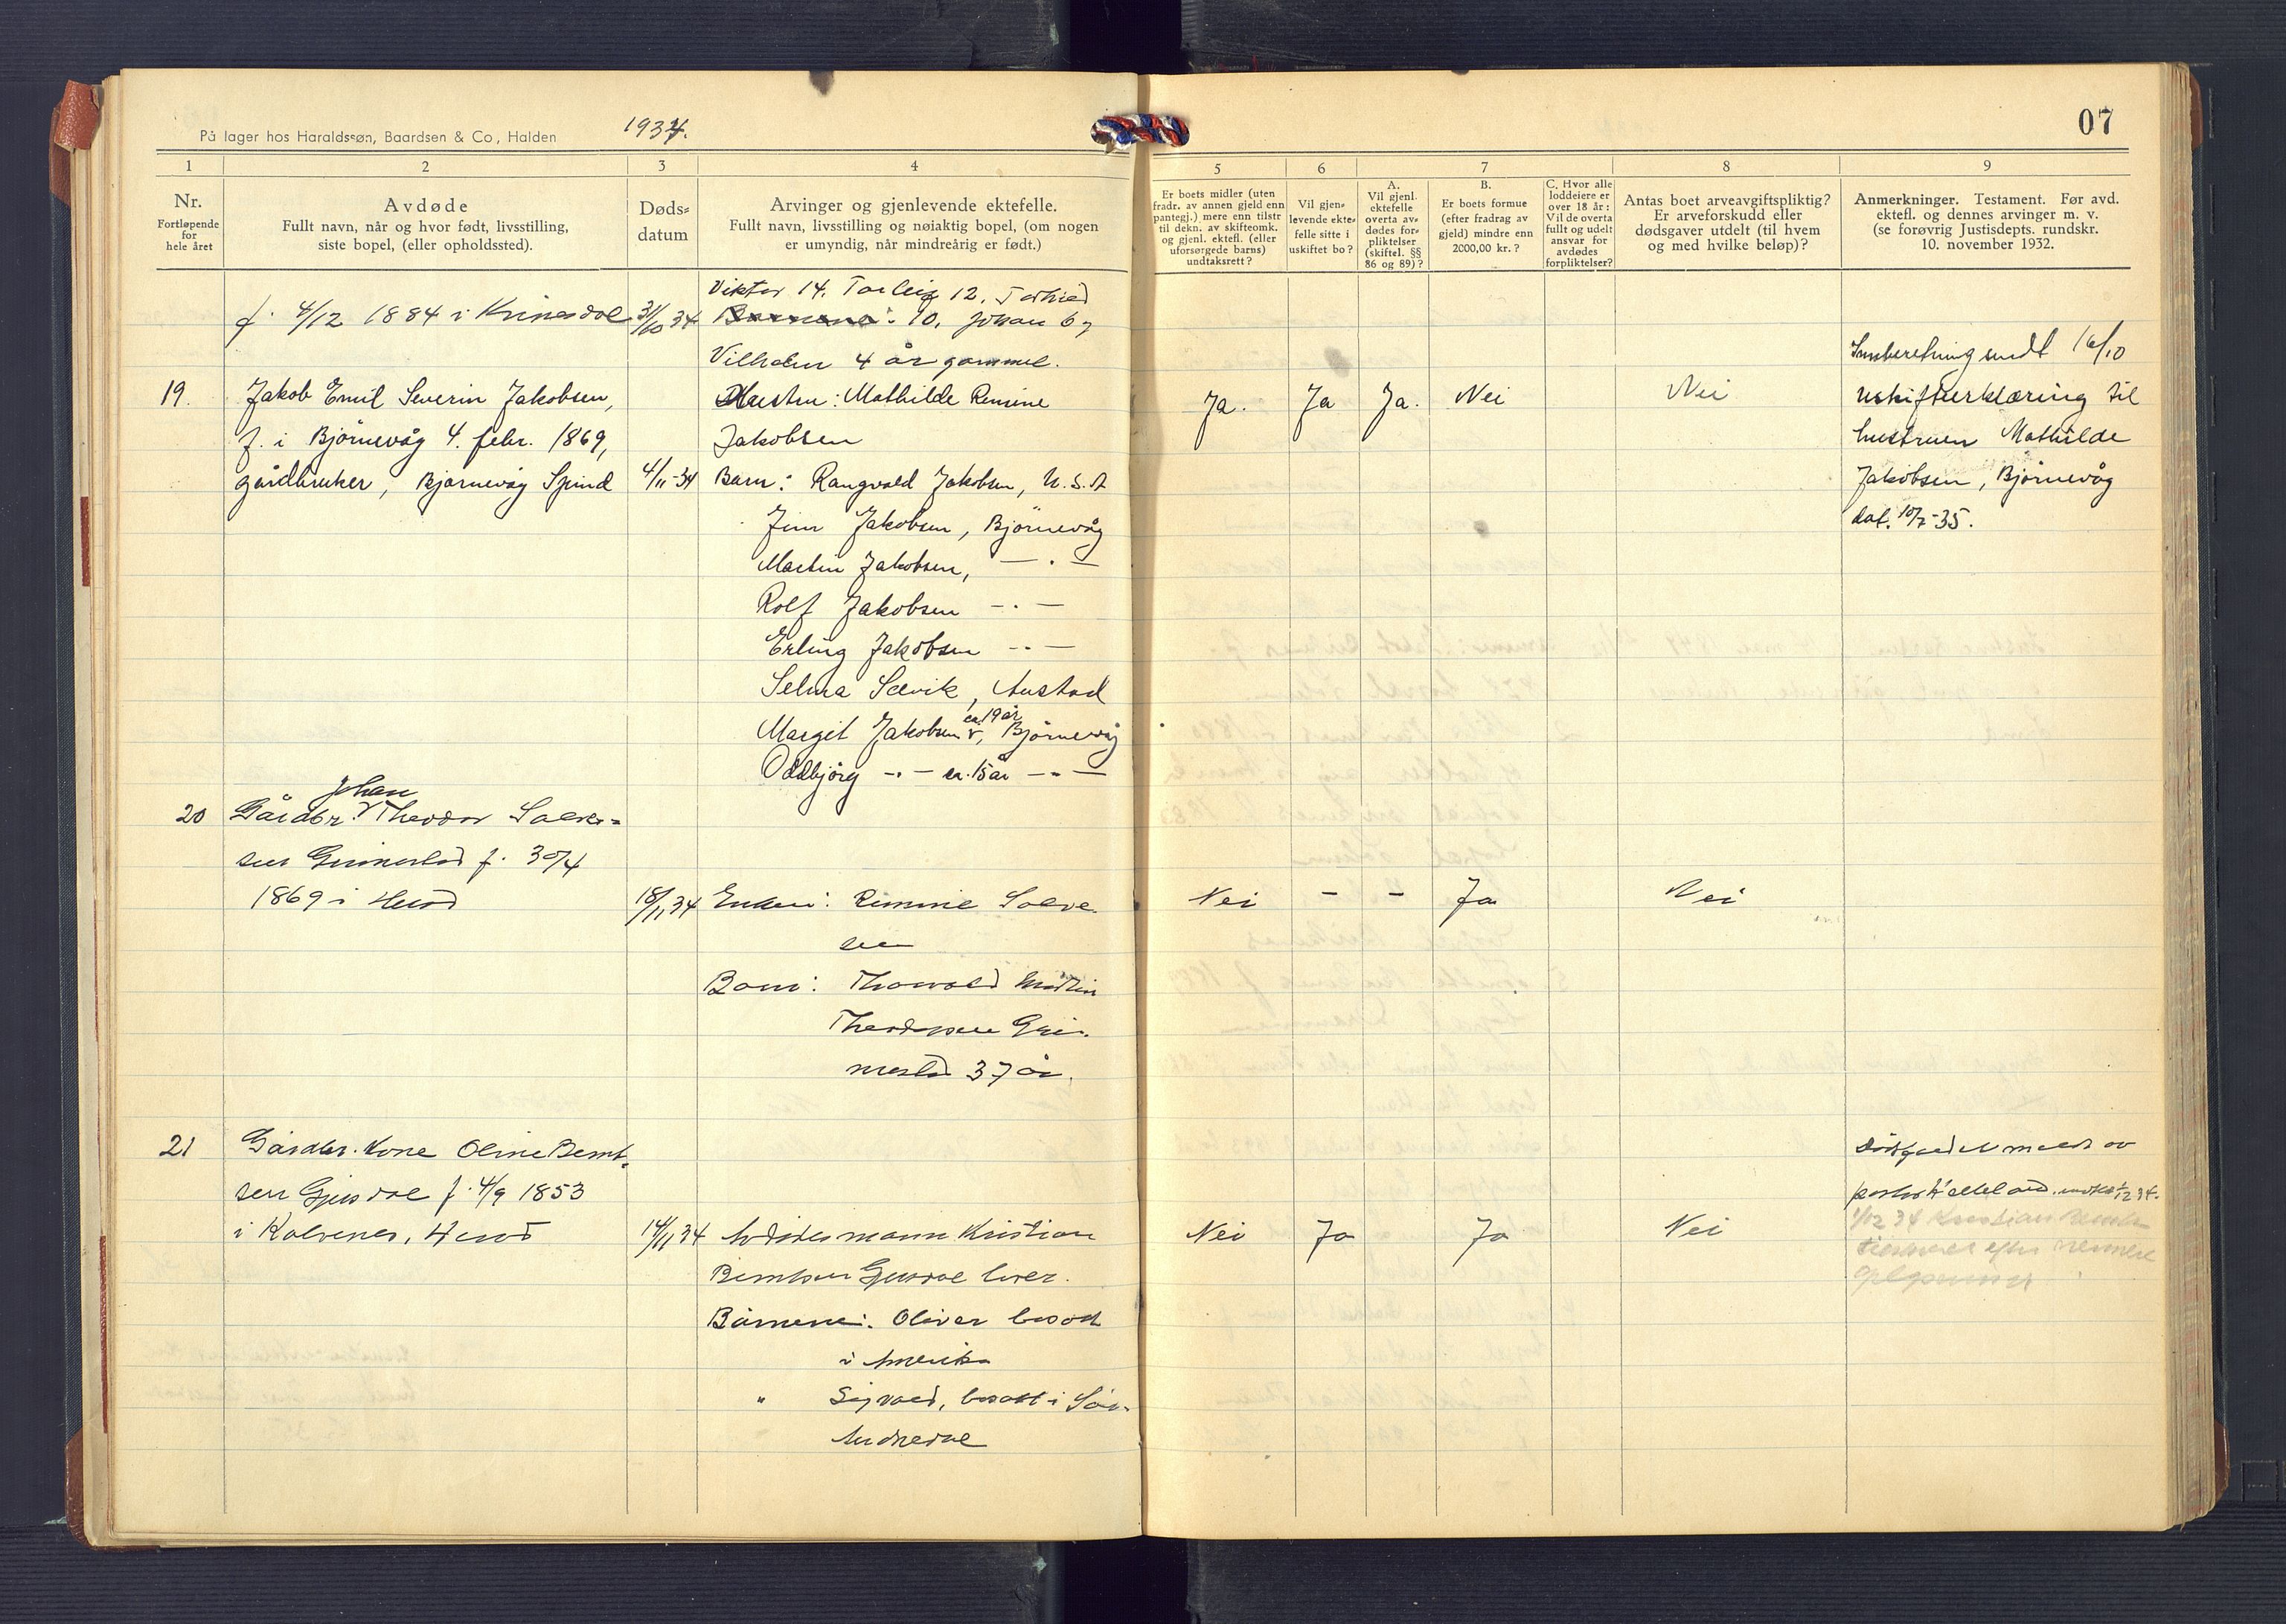 På lager hos Haraldssøn, Baardsen & Co, Halden
1934.
07
1
2
3
4
5
6
7
8
9
Nr.
Fortløpende
for
hele året
Avdøde
Fullt navn, når og hvor født, livsstilling,
siste bopel, (eller opholdssted).
Døds-
datum
Arvinger og gjenlevende ektefelle.
Fullt navn, livsstilling og nøiaktig bopel, (om nogen
er umyndig, når mindreårig er født.)
Er boets midler (uten
fradr. av annen gjeld enn
pantegj.) mere enn tilstr
til dekn. av skifteomk.
og gjenl. ektef. (eller
uforsørgede barns)
undtaksrett?
Vil gjen-
levende ekte-
felle sitte i
uskiftet bo?
A.
Vil gjenl.
ektefelle
overta av-
dødes for-
pliktelser
(skiftel. §§
86 og 89)?
B.
Er boets formue
(efter fradrag av
gjeld) mindre enn
2000,00 kr.?
C. Hvor alle
loddeiere er
over 18 år:
Vil de overta
fullt og udelt
ansvar for
avdødes
forpliktelser?
Antas boet arveavgiftspliktig?
Er arveforskudd eller
dødsgaver utdelt (til hvem
og med hvilke beløp)?
Anmerkninger. Testament. Før avd.
ektefl. og dennes arvinger m. v.
(se forøvrig Justisdepts. rundskr.
10. november 1932.
Viktor 14. Torleif 12.
f. 4/12 1884 i 31/10 34 10, Johan 6 og
Vilhelm 4 år gammel.
Innberetning sendt 16/10
19. Jakob Emil Severin Jakobsen, Mathilde Remine Ja. Ja Ja. Nei Nei uskifteerklæring til
f. i Björnevåg 4. febr. 1869, Jakobsen hustruen Mathilde
gårdbruker, Bjørnevåg Spind 4/11-34 Barn: Rangvald Jakobsen, U.S.A Jakobsen, Bjørnevåg
Finn Jakobsen, Björnevåg dat. 10/7-35.
Martin Jakobsen, — . —
Rolf Jakobsen - . —
Erling Jakobsen - . —
Selma Sævik, Austad
ca. 19 år
Margit Jakobsen, Bjørnevåg
Oddbjörg - . - ca. 15 år - . —
Johan
20 Gårdbr. Theodor Salve-
sen Grimestad f. 30/4
1869 i Herad 18/11 34 Enken: Remine Salve- Nei - - Ja Nei
sen
Barn: Thorvald Martin
Theodorsen Gri-
mestad 37 år.
21 Gårdbr. kone Oline Bernt-
sen Gjusdal f. 4/9 1853
i Kalvenes, Herad 14/11 34 Kristian Nei Ja Ja Nei
Berntsen Gjusdal lever.
Barnene: Oliver bosatt
i Amerika
" Sigvald, bosatt i Sør-
Audnedal